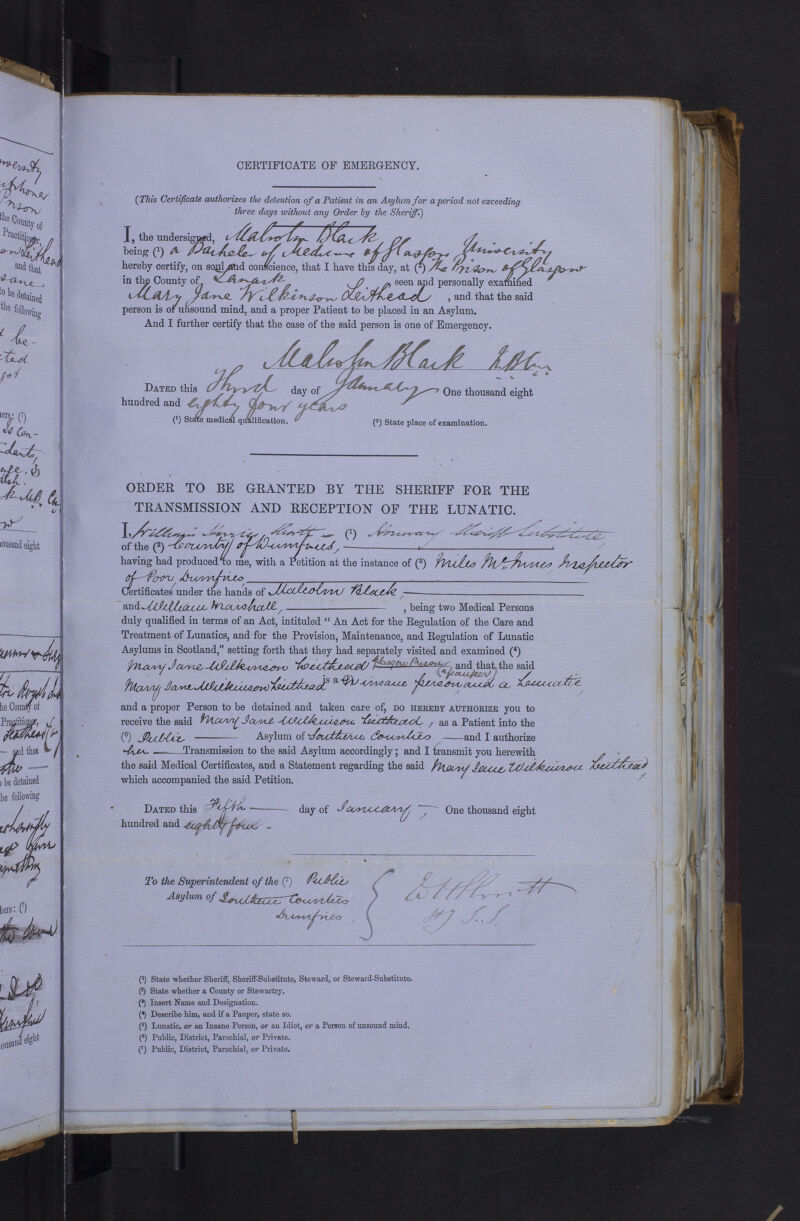 CERTIFICATE OF EMERGENCY.
(This Certificate authorizes the detention of a Patient in an Asylum for a period not exceeding
three days without any Order by the Sheriff.)
I, the undersigned, Malcolm Black
being (1) a Bachelor of Medicine of Glasgow University
hereby certify, on soul and conscience, that I have this day, at (2) The Prison of Glasgow
in the County of Lanark seen and personally examined
Mary Jane Wilkinson Leithead, and that the said
person is of unsound mind, and a proper Patient to be placed in an Asylum.
And I further certify that the case of the said person is one of Emergency.
Malcolm Black
DATED this Third day of January One thousand eight
hundred and eighty four years
(1) State medical qualification. (2) State place of examination.
ORDER TO BE GRANTED BY THE SHERIFF FOR THE
TRANSMISSION AND RECEPTION OF THE LUNATIC.
I, William (1) Honorary Sheriff Substitute,
of the (2) County of Dumfries,
having had produced to me, with a Petition at the instance of (3) Miles McInnes, Inspector
of Poor Dumfries,
Certificates under the hands of Malcolm Black,
and William Marshall, , being two Medical Persons
duly qualified in terms of an Act, intituled "An Act for the Regulation of the Care and
Treatment of Lunatics, and for the Provision, Maintenance, and Regulation of Lunatic
Asylums in Scotland," setting forth that they had separately visited and examined (4)
Mary Jane Wilkinson Leithead Glasgow Prison (a pauper) and that the said
Mary Jane Wilkinson Leithead is a (5) insane person and a Lunatic,
and a proper Person to be detained and taken care of, DO HEREBY AUTHORIZE you to
receive the said Mary Jane Wilkinson Leithead, as a Patient into the
(6) Public Asylum of Southern Counties and I authorize
her Transmission to the said Asylum accordingly; and I transmit you herewith
the said Medical Certificates, and a Statement regarding the said Mary Jane Wilkinson Leithead,
which accompanied the said Petition.
DATED this Fifth day of January, One thousand eight
hundred and eighty four.
To the Superintendent of the (7) Public
Asylum of Southern Counties
Dumfries
H S.S.
(1) State whether Sheriff, Sheriff-Substitute, Steward, or Steward-Substitute.
(2) State whether a County or Stewartry.
(3) Insert Name and Designation.
(4) Describe him, and if a Pauper, state so.
(5) Lunatic, or an Insane Person, or an Idiot, or a Person of unsound mind.
(6) Public, District, Parochial, or Private.
(7) Public, District, Parochial, or Private.